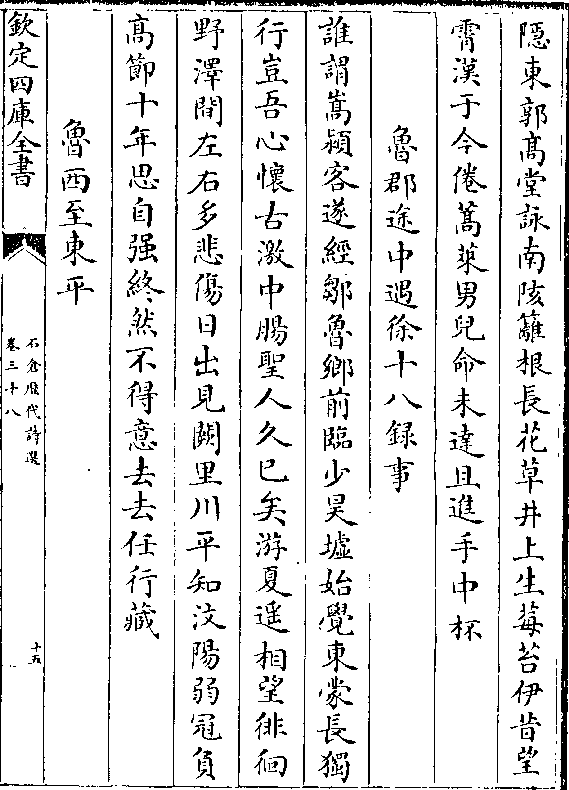 隱東郭髙堂詠南陔籬根長花草井上生莓苔伊昔望
霄漢于今倦蒿萊男兒命未達且進手中杯
魯郡途中遇徐十八録事
誰謂嵩潁客遂經鄒魯鄉前臨少昊墟始覺東蒙長獨
行豈吾心懷古激中腸聖人久已矣游夏遥相望徘徊
野澤間左右多悲傷日出見闕里川平知汶陽弱冠負
髙節十年思自强終然不得意去去任行藏
魯西至東平
欽定四庫全書
石倉歴代詩選
卷三十八
十五